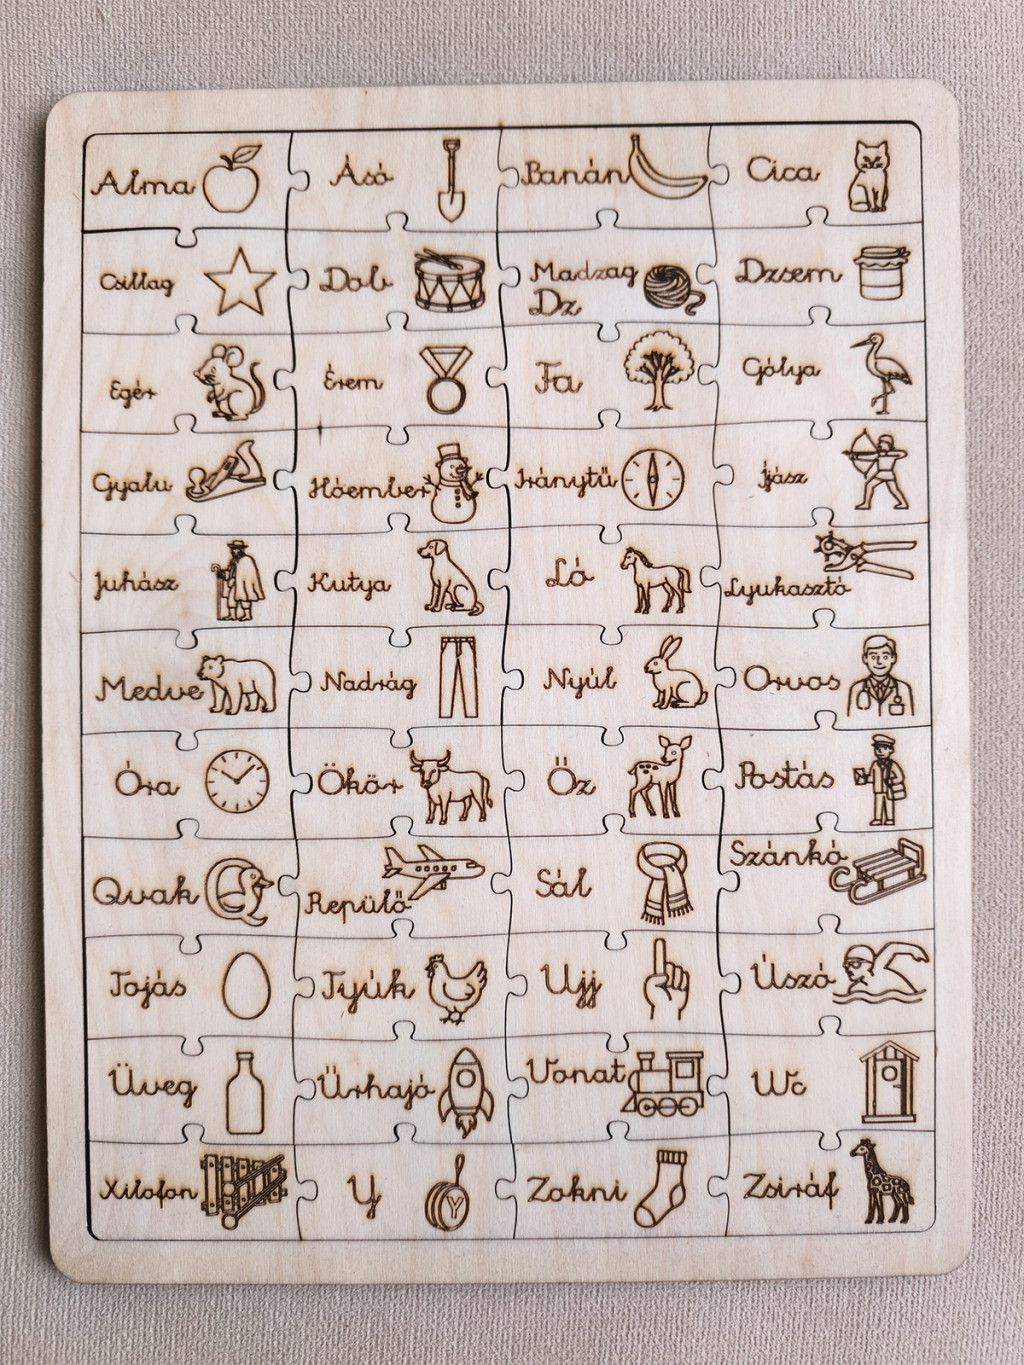 Alma Ásó Banán Cica
Csillag Dob Madzag Dzsem
Dz
Egér Érem Fa Gólya
Gyalu Hóember Iránytű Íjász
Juhász Kutya Ló Lyukasztó
Medve Nadrág Nyúl Orvos
Óra Ökör Őz Postás
Quak Repülő Sál Szánkó
Tojás Tyúk Ujj Úszó
Üveg Űrhajó Vonat Wc
Xilofon Y Y Zokni Zsiráf